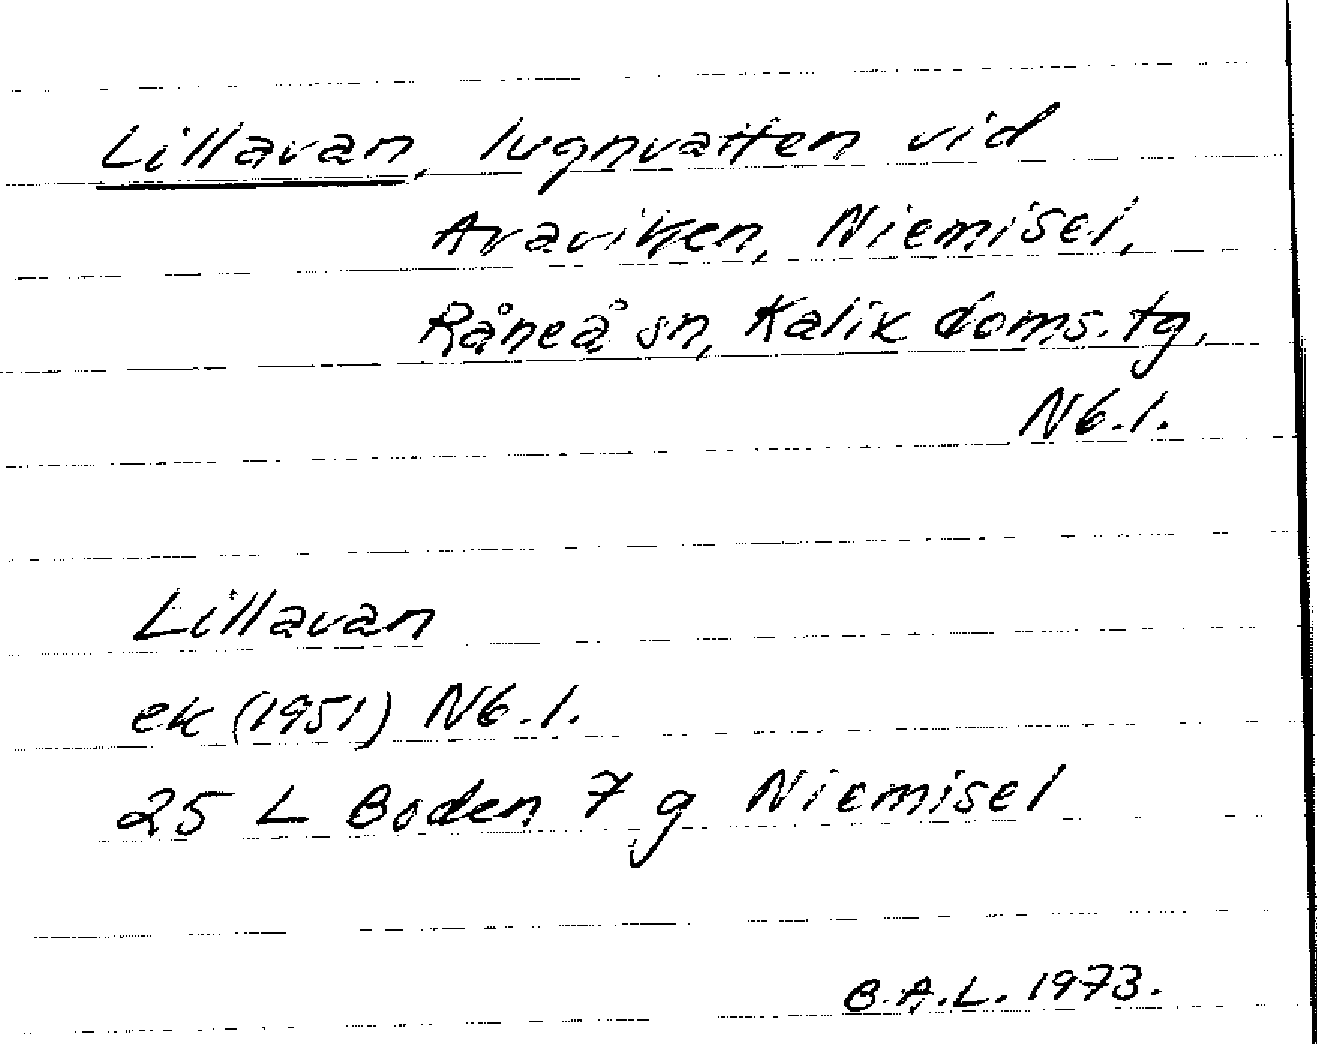 Lillavan, lugnvatten vid
Avaviken, Niemisel,
Råneå sn, Kalix doms. tg,
Nb.l.
Lillavan
ek (1951) Nb.l.
25 L Boden 7 g Niemisel
B.A.L. 1973.